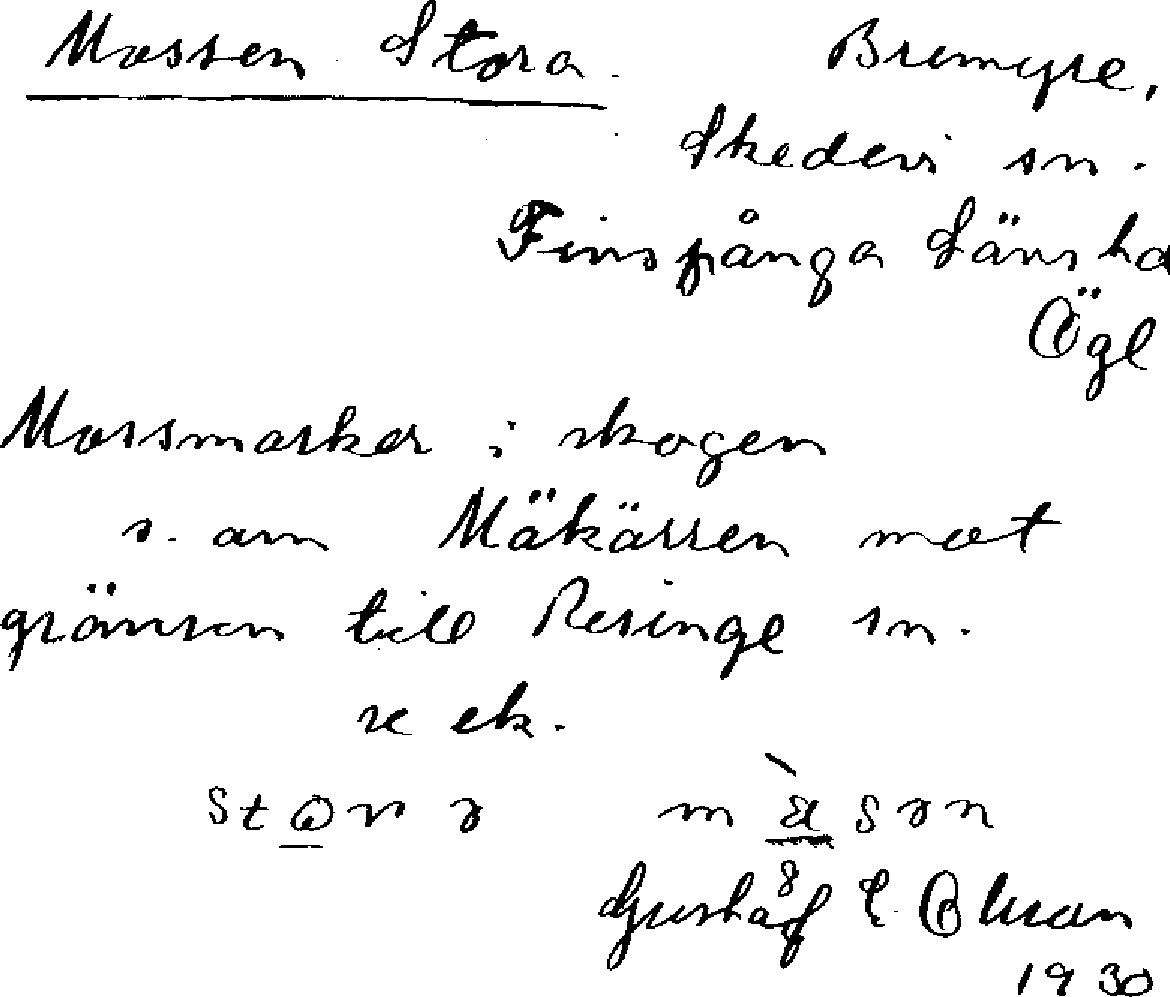 Mossen Stora Bremyre,
Skedevi sn.
Finspånga Länshd
Ögl
Mossmarker i skogen
s. om Mäkärren mot
gränsen till Regsinge sn.
se ek.
Gustaf E. Olsson
1930